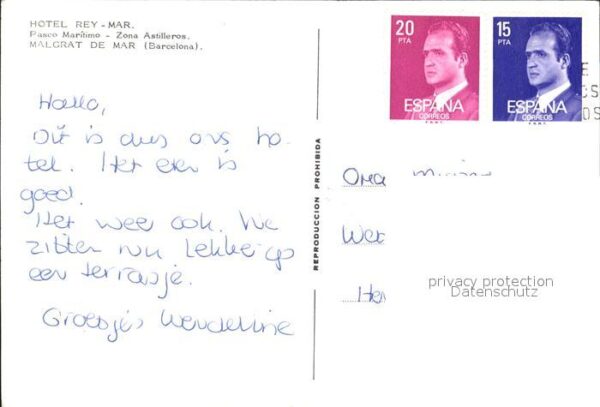 HOTEL REY-MAR.
Pasco Marítimo - Zona Astilleros.
MALGRAT DE MAR (Barcelona).
20
PTA
ESPAÑA
CORREOS
15
PTA
ESPAÑA
CORREOS
Hallo,
Dit is dus ons ho-
tel. Het eten is
goed.
Het weer ook. We
zitten nu lekker op
een terrasje.
Groetjes Wendeline
REPRODUCCION PROHIBIDA
Oma
privacy protection
Datenschutz